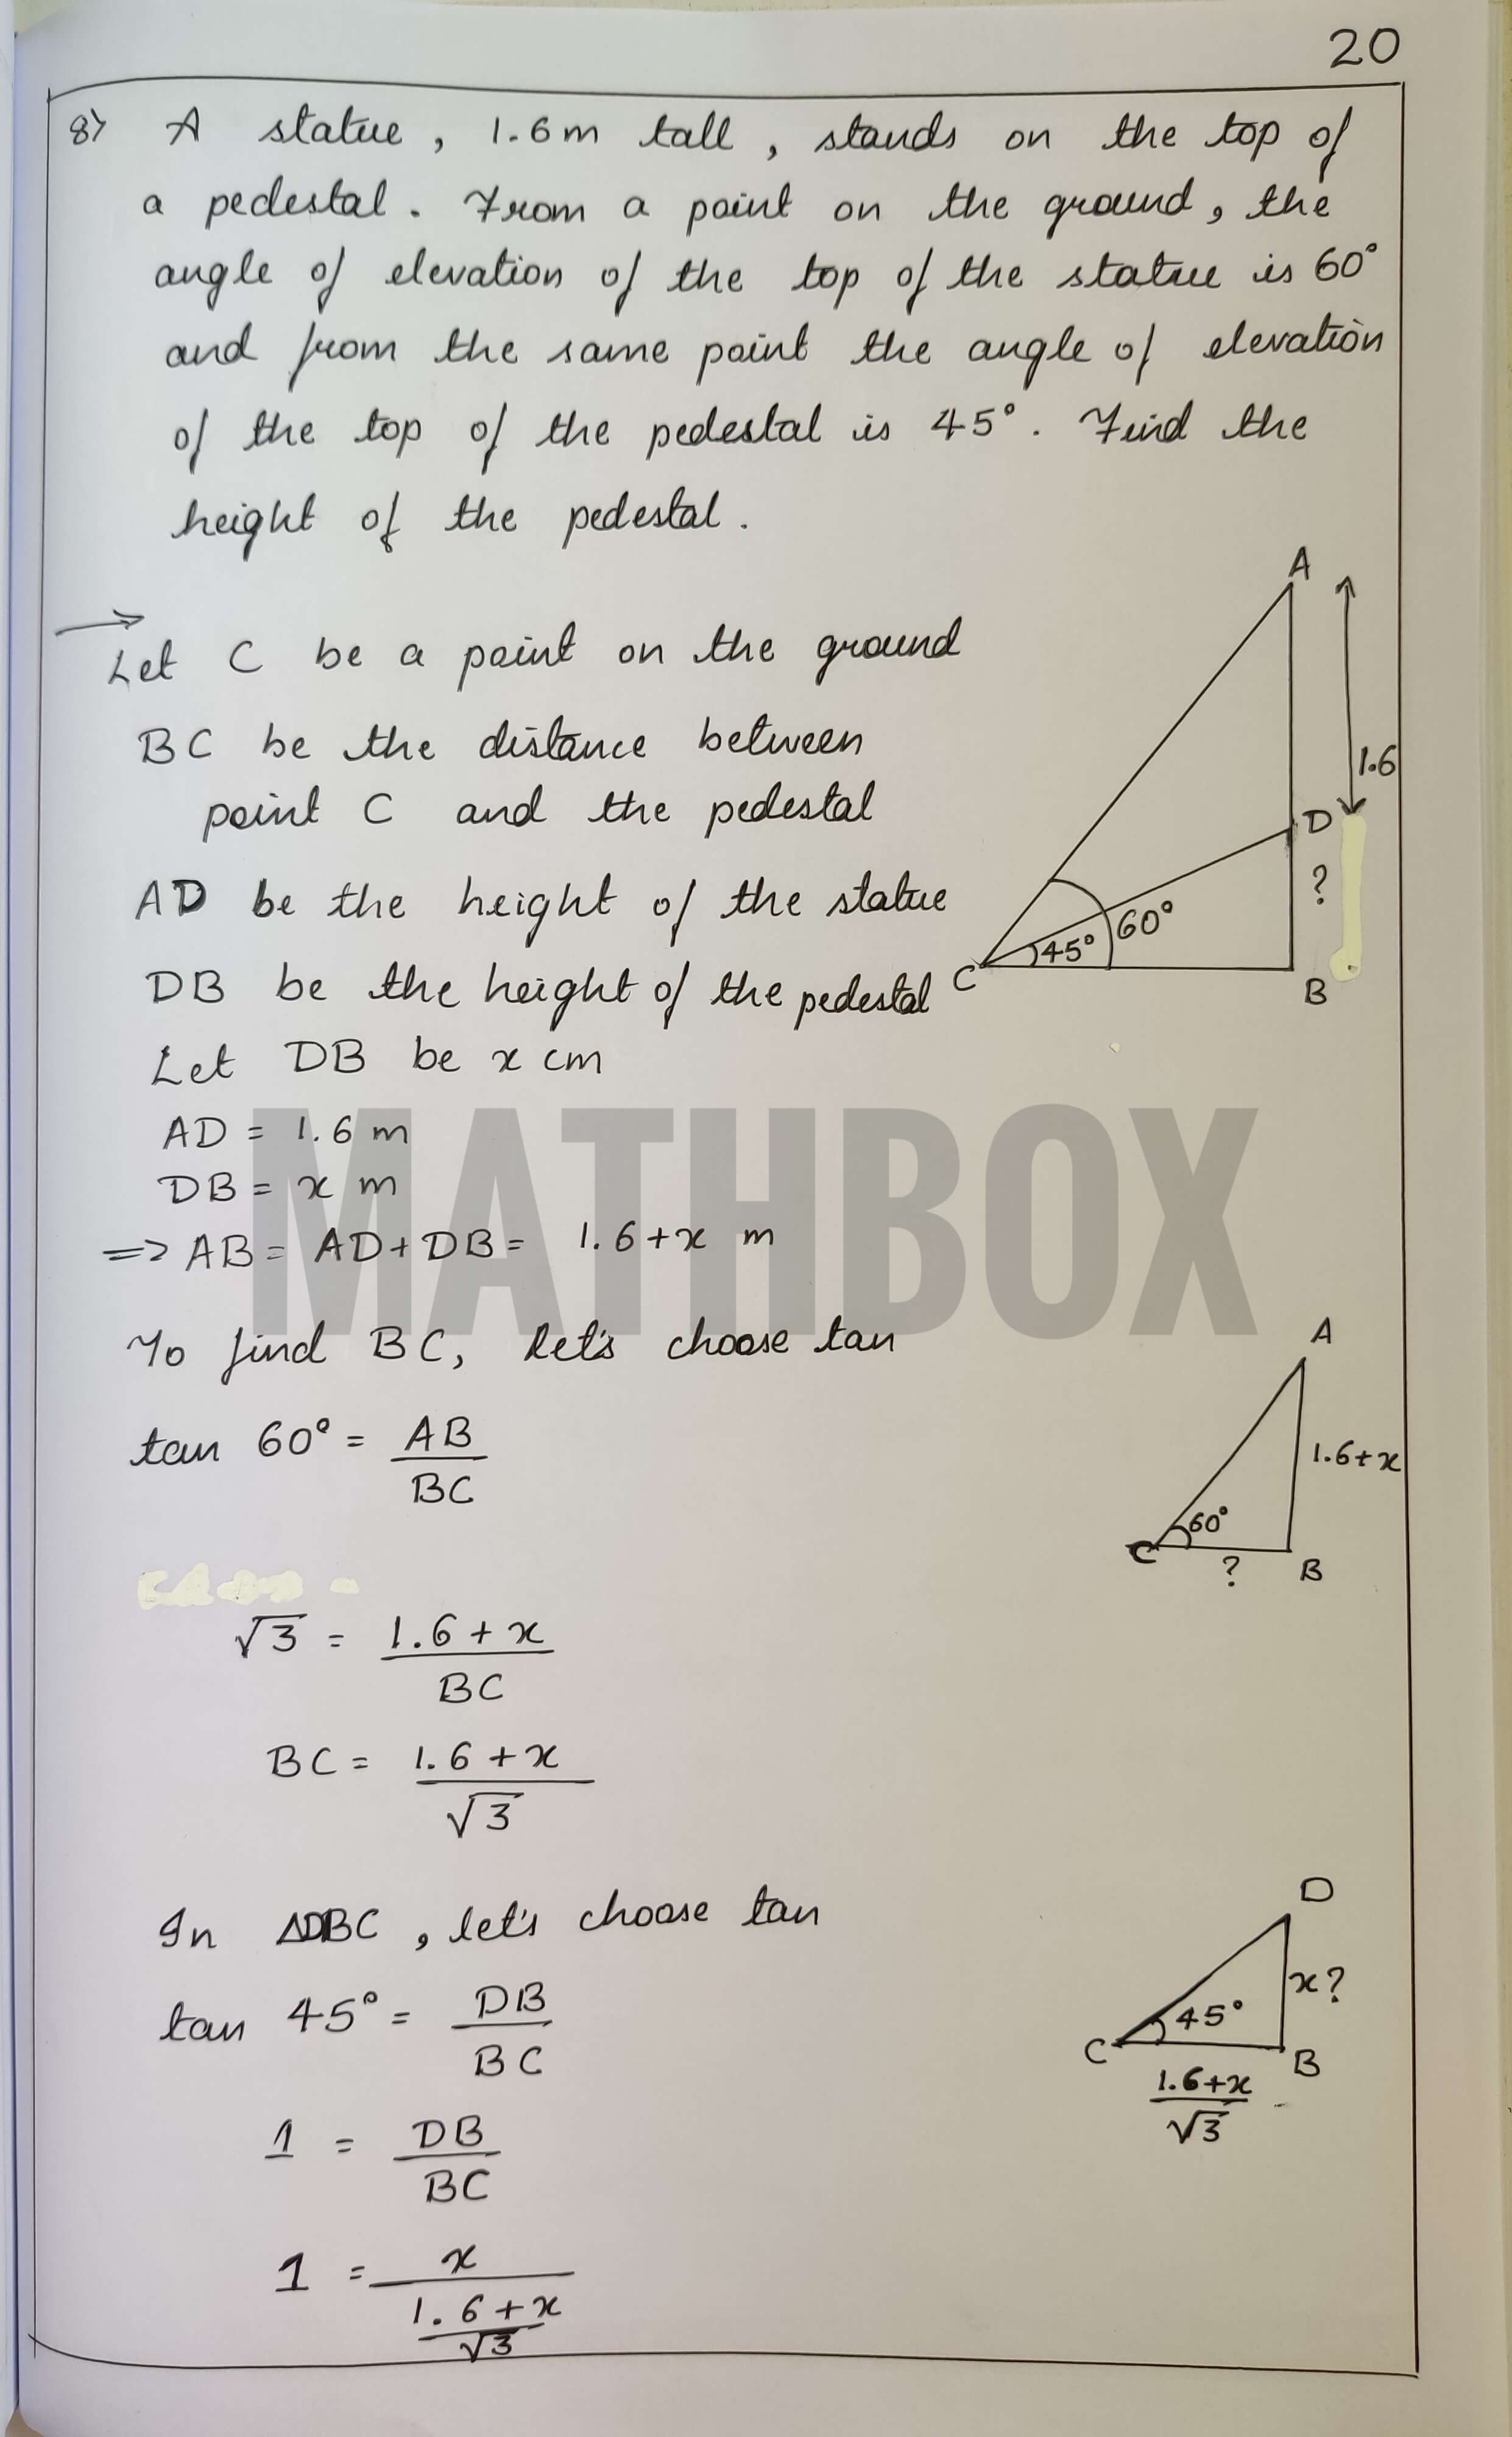 20
8) A statue, 1.6m tall, stands on the top of
a pedestal. From a point on the ground, the
angle of elevation of the top of the statue is 60°
and from the same point the angle of elevation
of the top of the pedestal is 45°. Find the
height of the pedestal.
→
Let C be a point on the ground
BC be the distance between
point C and the pedestal
AD be the height of the statue
DB be the height of the pedestal
A
1.6
D
?
60°
45°
C
B
Let DB be x cm
AD = 1.6 m
DB = x m
=> AB = AD + DB = 1.6 + x m
MATHBOX
To find BC, let's choose tan
tan 60° = AB
BC
A
1.6+x
60°
C
?
B
√3 = 1.6 + x
BC
BC = 1.6 + x
√3
In ΔDBC, let's choose tan
tan 45° = DB
BC
D
x?
45°
C
B
1.6+x
√3
1 = DB
BC
1 = x
1.6 + x
√3